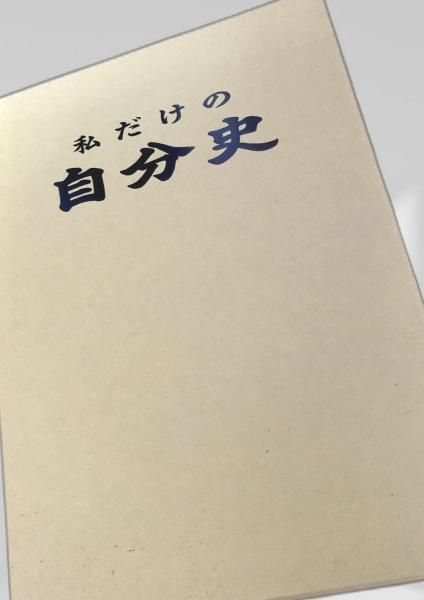 私だけの
自分史